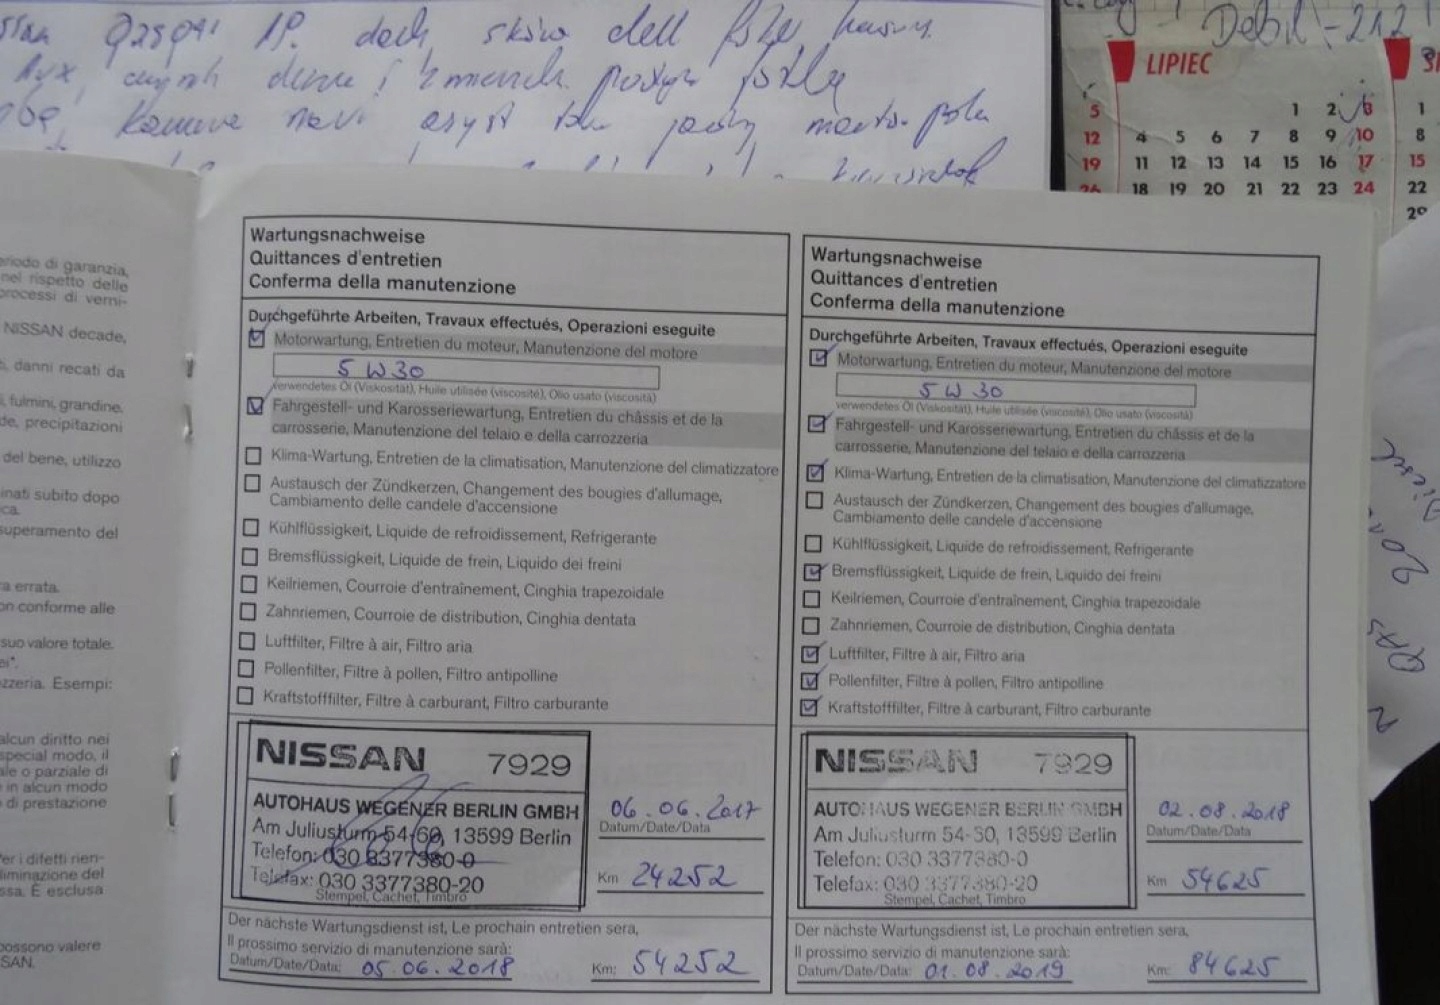 dech
LIPIEC
5 1 2 3 1
12 4 5 6 7 8 9 10 8
19 11 12 13 14 15 16 17 15
26 18 19 20 21 22 23 24 22
29
eriodo di garanzia,
nel rispetto delle
processi di verni-
NISSAN decade,
danni recati da
fulmini, grandine,
de, precipitazioni
del bene, utilizzo
inati subito dopo
ca.
superamento del
ra errata.
on conforme alle
suo valore totale.
ei".
zzeria. Esempi:
alcun diritto nei
special modo, il
ale o parziale di
in alcun modo
di prestazione
Per i difetti rien-
liminazione del
ssa. È esclusa
possono valere
SAN.
Wartungsnachweise
Quittances d'entretien
Conferma della manutenzione
Durchgeführte Arbeiten, Travaux effectués, Operazioni eseguite
Motorwartung, Entretien du moteur, Manutenzione del motore
5 W 30
verwendetes Öl (Viskosität), Huile utilisée (viscosité), Olio usato (viscosità)
Fahrgestell- und Karosseriewartung, Entretien du châssis et de la
carrosserie, Manutenzione del telaio e della carrozzeria
Klima-Wartung, Entretien de la climatisation, Manutenzione del climatizzatore
Austausch der Zündkerzen, Changement des bougies d'allumage,
Cambiamento delle candele d'accensione
Kühlflüssigkeit, Liquide de refroidissement, Refrigerante
Bremsflüssigkeit, Liquide de frein, Liquido dei freini
Keilriemen, Courroie d'entraînement, Cinghia trapezoidale
Zahnriemen, Courroie de distribution, Cinghia dentata
Luftfilter, Filtre à air, Filtro aria
Pollenfilter, Filtre à pollen, Filtro antipolline
Kraftstofffilter, Filtre à carburant, Filtro carburante
NISSAN 7929
AUTOHAUS WEGENER BERLIN GMBH
Am Juliusturm 54-60, 13599 Berlin
Telefon: 030 3377380-0
Telefax: 030 3377380-20
Stempel, Cachet, Timbro
06.06.2017
Datum/Date/Data
Km 24252
Der nächste Wartungsdienst ist, Le prochain entretien sera,
Il prossimo servizio di manutenzione sarà:
Datum/Date/Data: 05.06.2018 Km: 54252
Wartungsnachweise
Quittances d'entretien
Conferma della manutenzione
Durchgeführte Arbeiten, Travaux effectués, Operazioni eseguite
Motorwartung, Entretien du moteur, Manutenzione del motore
5 W 30
verwendetes Öl (Viskosität), Huile utilisée (viscosité), Olio usato (viscosità)
Fahrgestell- und Karosseriewartung, Entretien du châssis et de la
carrosserie, Manutenzione del telaio e della carrozzeria
Klima-Wartung, Entretien de la climatisation, Manutenzione del climatizzatore
Austausch der Zündkerzen, Changement des bougies d'allumage,
Cambiamento delle candele d'accensione
Kühlflüssigkeit, Liquide de refroidissement, Refrigerante
Bremsflüssigkeit, Liquide de frein, Liquido dei freini
Keilriemen, Courroie d'entraînement, Cinghia trapezoidale
Zahnriemen, Courroie de distribution, Cinghia dentata
Luftfilter, Filtre à air, Filtro aria
Pollenfilter, Filtre à pollen, Filtro antipolline
Kraftstofffilter, Filtre à carburant, Filtro carburante
NISSAN 7929
AUTOHAUS WEGENER BERLIN GMBH
Am Juliusturm 54-60, 13599 Berlin
Telefon: 030 3377380-0
Telefax: 030 3377380-20
Stempel, Cachet, Timbro
02.08.2018
Datum/Date/Data
Km 54625
Der nächste Wartungsdienst ist, Le prochain entretien sera,
Il prossimo servizio di manutenzione sarà:
Datum/Date/Data: 01.08.2019 Km: 84625